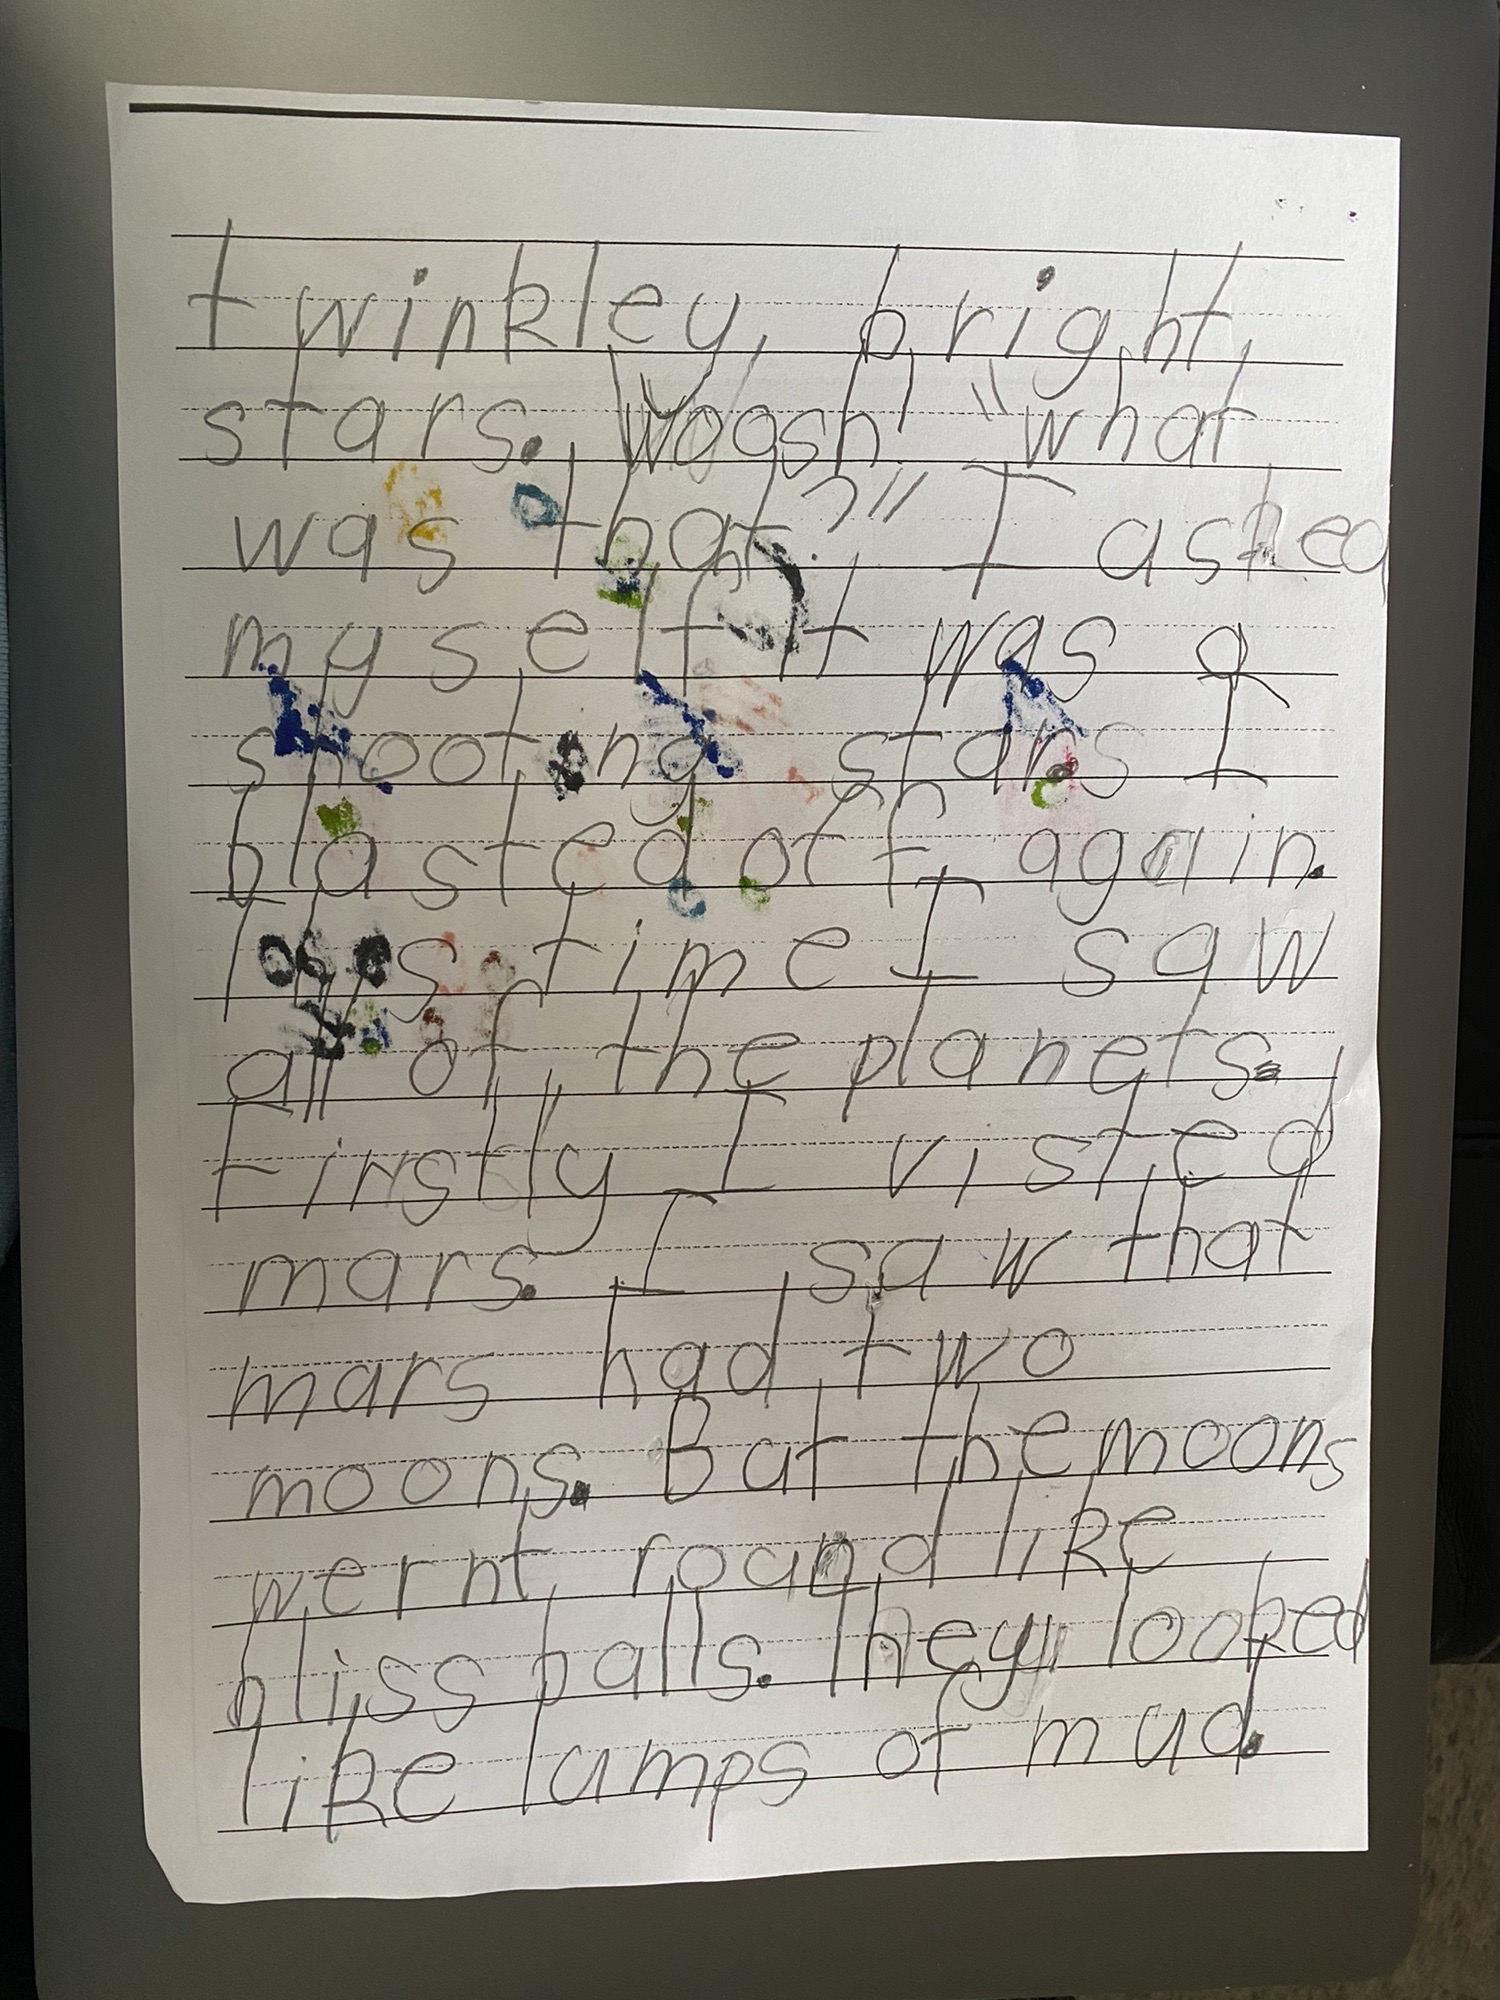 twinkley, bright,
stars. Woosh! "what
was that?" I asked
myself It was a
shooting stars I
blasted off again.
This time I saw
all of the planets.
Firstly I visted
mars. I saw that
mars had two
moons. But the moons
wernt round like
bliss balls. They looked
like lumps of mud.